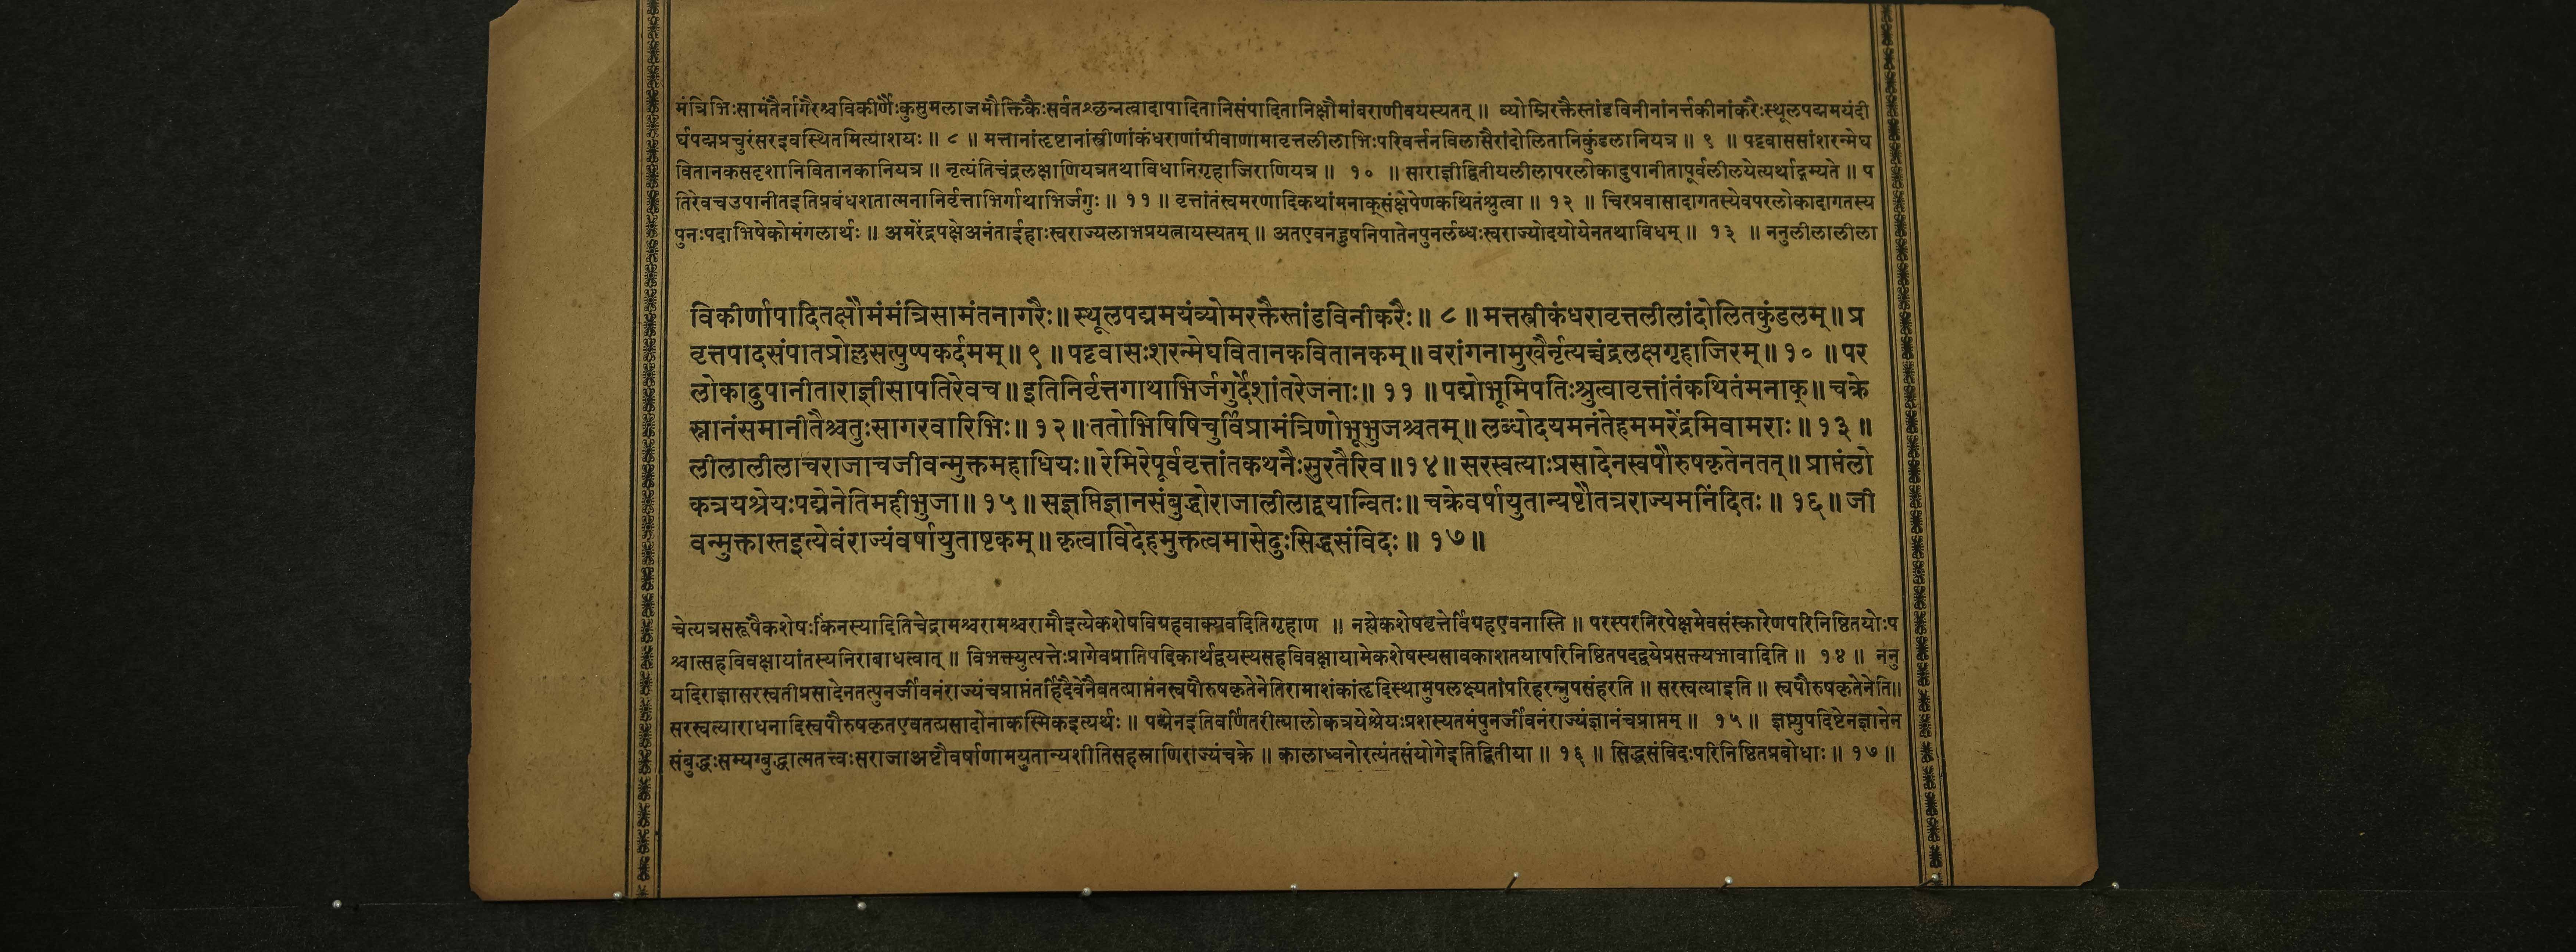 मंत्रिभिःसामंतैर्नागरैश्चविकीर्णैःकुसुमलाजमौक्तिकैःसर्वतश्छन्नत्वादापादितानिसंपादितानिक्षौमांबराणीवयस्यतत् ॥ व्योम्निरक्तैस्तांडविनीनांनर्त्तकीनांकरैःस्थूलपद्ममयंदी
र्घपद्मप्रचुरंसरइवस्थितमित्याशयः ॥ ८ ॥ मत्तानांहृष्टानांस्त्रीणांकंधराणांग्रीवाणामावृत्तलीलाभिःपरिवर्त्तनविलासैरांदोलितानिकुंडलानियत्र ॥ ९ ॥ पट्टवाससांशरन्मेघ
वितानकसदृशानिवितानकानियत्र ॥ नृत्यंतिचंद्रलक्षाणियत्रतथाविधानिगृहाजिराणियत्र ॥ १० ॥ साराज्ञीद्वितीयलीलापरलोकादुपानीतापूर्वलीलयेत्यर्थाद्गम्यते ॥ प
तिरेवचउपानीतइतिप्रबंधशतात्मनानिर्वृत्ताभिर्गाथाभिर्जगुः ॥ ११ ॥ वृत्तांतंस्वमरणादिकथांमनाक्संक्षेपेणकथितंश्रुत्वा ॥ १२ ॥ चिरप्रवासादागतस्येवपरलोकादागतस्य
पुनःपदाभिषेकोमंगलार्थः ॥ अमरेंद्रपक्षेअनंताईहाःस्वराज्यलाभप्रयत्नायस्यतम् ॥ अतएवनहुषनिपातेनपुनर्लब्धःस्वराज्योदयोयेनतथाविधम् ॥ १३ ॥ ननुलीलालीला
विकीर्णापादितक्षौमंमंत्रिसामंतनागरैः ॥ स्थूलपद्ममयंव्योमरक्तैस्तांडविनीकरैः ॥ ८ ॥ मत्तस्त्रीकंधरावृत्तलीलांदोलितकुंडलम् ॥ प्र
वृत्तपादसंपातप्रोल्लसत्पुष्पकर्दमम् ॥ ९ ॥ पट्टवासःशरन्मेघवितानकवितानकम् ॥ वरांगनामुखैर्नृत्यच्चंद्रलक्षगृहाजिरम् ॥ १० ॥ पर
लोकादुपानीताराज्ञीसापतिरेवच ॥ इतिनिर्वृत्तगाथाभिर्जगुर्देशांतरेजनाः ॥ ११ ॥ पद्मोभूमिपतिःश्रुत्वावृत्तांतंकथितंमनाक् ॥ चक्रे
स्नानंसमानीतैश्चतुःसागरवारिभिः ॥ १२ ॥ ततोभिषिषिचुर्विप्रामंत्रिणोभूभुजश्चतम् ॥ लब्धोदयमनंतेहममरेंद्रमिवामराः ॥ १३ ॥
लीलालीलाचराजाचजीवन्मुक्तमहाधियः ॥ रेमिरेपूर्ववृत्तांतकथनैःसुरतैरिव ॥ १४ ॥ सरस्वत्याःप्रसादेनस्वपौरुषकृतेनतत् ॥ प्राप्तंलो
कत्रयश्रेयःपद्मेनेतिमहीभुजा ॥ १५ ॥ सज्ञप्तिज्ञानसंबुद्धोराजालीलाद्वयान्वितः ॥ चक्रेवर्षायुतान्यष्टौतत्रराज्यमनिंदितः ॥ १६ ॥ जी
वन्मुक्तास्तइत्येवंराज्यंवर्षायुताष्टकम् ॥ कृत्वाविदेहमुक्तत्वमासेदुःसिद्धसंविदः ॥ १७ ॥
चेत्यत्रसरूपैकशेषःकिंनस्यादितिचेद्रामश्चरामश्चरामौइत्येकशेषविग्रहवाक्यवदितिगृहाण ॥ नह्येकशेषवृत्तेर्विग्रहएवनास्ति ॥ परस्परनिरपेक्षमेवसंस्कारेणपरिनिष्ठितयोःप
श्चात्सहविवक्षायांतस्यनिराबाधत्वात् ॥ विभक्त्युत्पत्तेःप्रागेवप्रातिपदिकार्थद्वयस्यसहविवक्षायामेकशेषस्यसावकाशतयापरिनिष्ठितपदद्वयेप्रसक्त्यभावादिति ॥ १४ ॥ ननु
यदिराज्ञासरस्वतीप्रसादेनतत्पुनर्जीवनंराज्यंचप्राप्तंतर्हिदैवेनैवतत्प्राप्तंनस्वपौरुषकृतेनेतिरामाशंकांहृदिस्थामुपलक्ष्यतांपरिहरन्नुपसंहरति ॥ सरस्वत्याइति ॥ स्वपौरुषकृतेनेति॥
सरस्वत्याराधनादिस्वपौरुषकृतएवतत्प्रसादोनाकस्मिकइत्यर्थः ॥ पद्मेनइतिवर्णितरीत्यालोकत्रयेश्रेयःप्रशस्यतमंपुनर्जीवनंराज्यंज्ञानंचप्राप्तम् ॥ १५ ॥ ज्ञप्त्युपदिष्टेनज्ञानेन
संबुद्धःसम्यग्बुद्धात्मतत्त्वःसराजाअष्टौवर्षाणामयुतान्यशीतिसहस्राणिराज्यंचक्रे ॥ कालाध्वनोरत्यंतसंयोगेइतिद्वितीया ॥ १६ ॥ सिद्धसंविदःपरिनिष्ठितप्रबोधाः ॥ १७ ॥